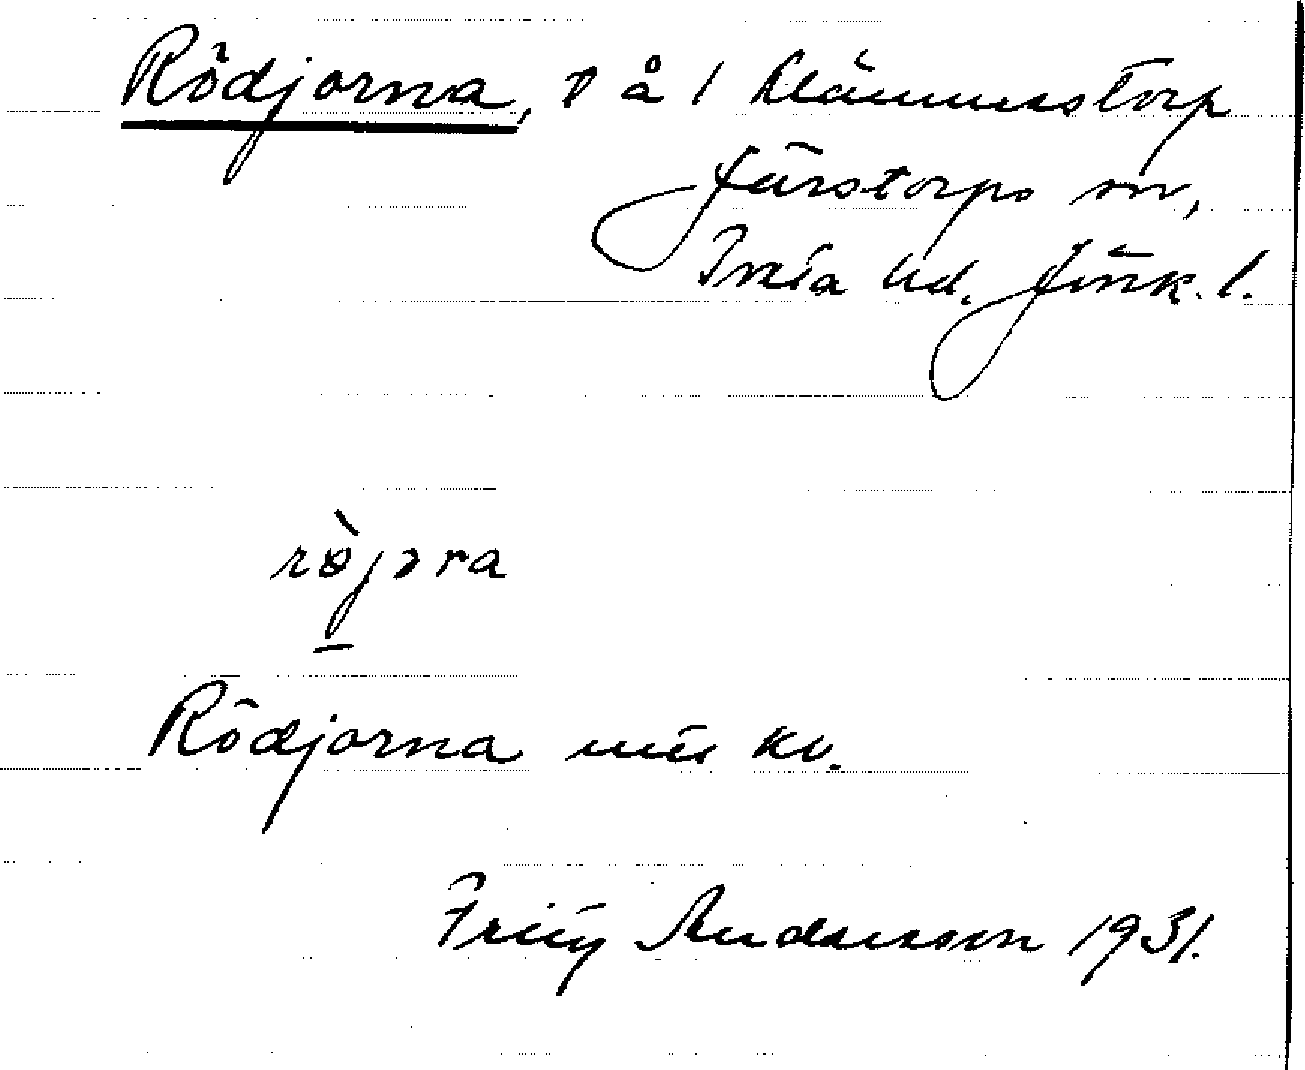 Rödjorna, v å 1 Klämmestorp
Järstorps sn,
Tveta hd. Jönk. l.
rø̀jəra
Rödjorna
kv.
Andersson 1931.